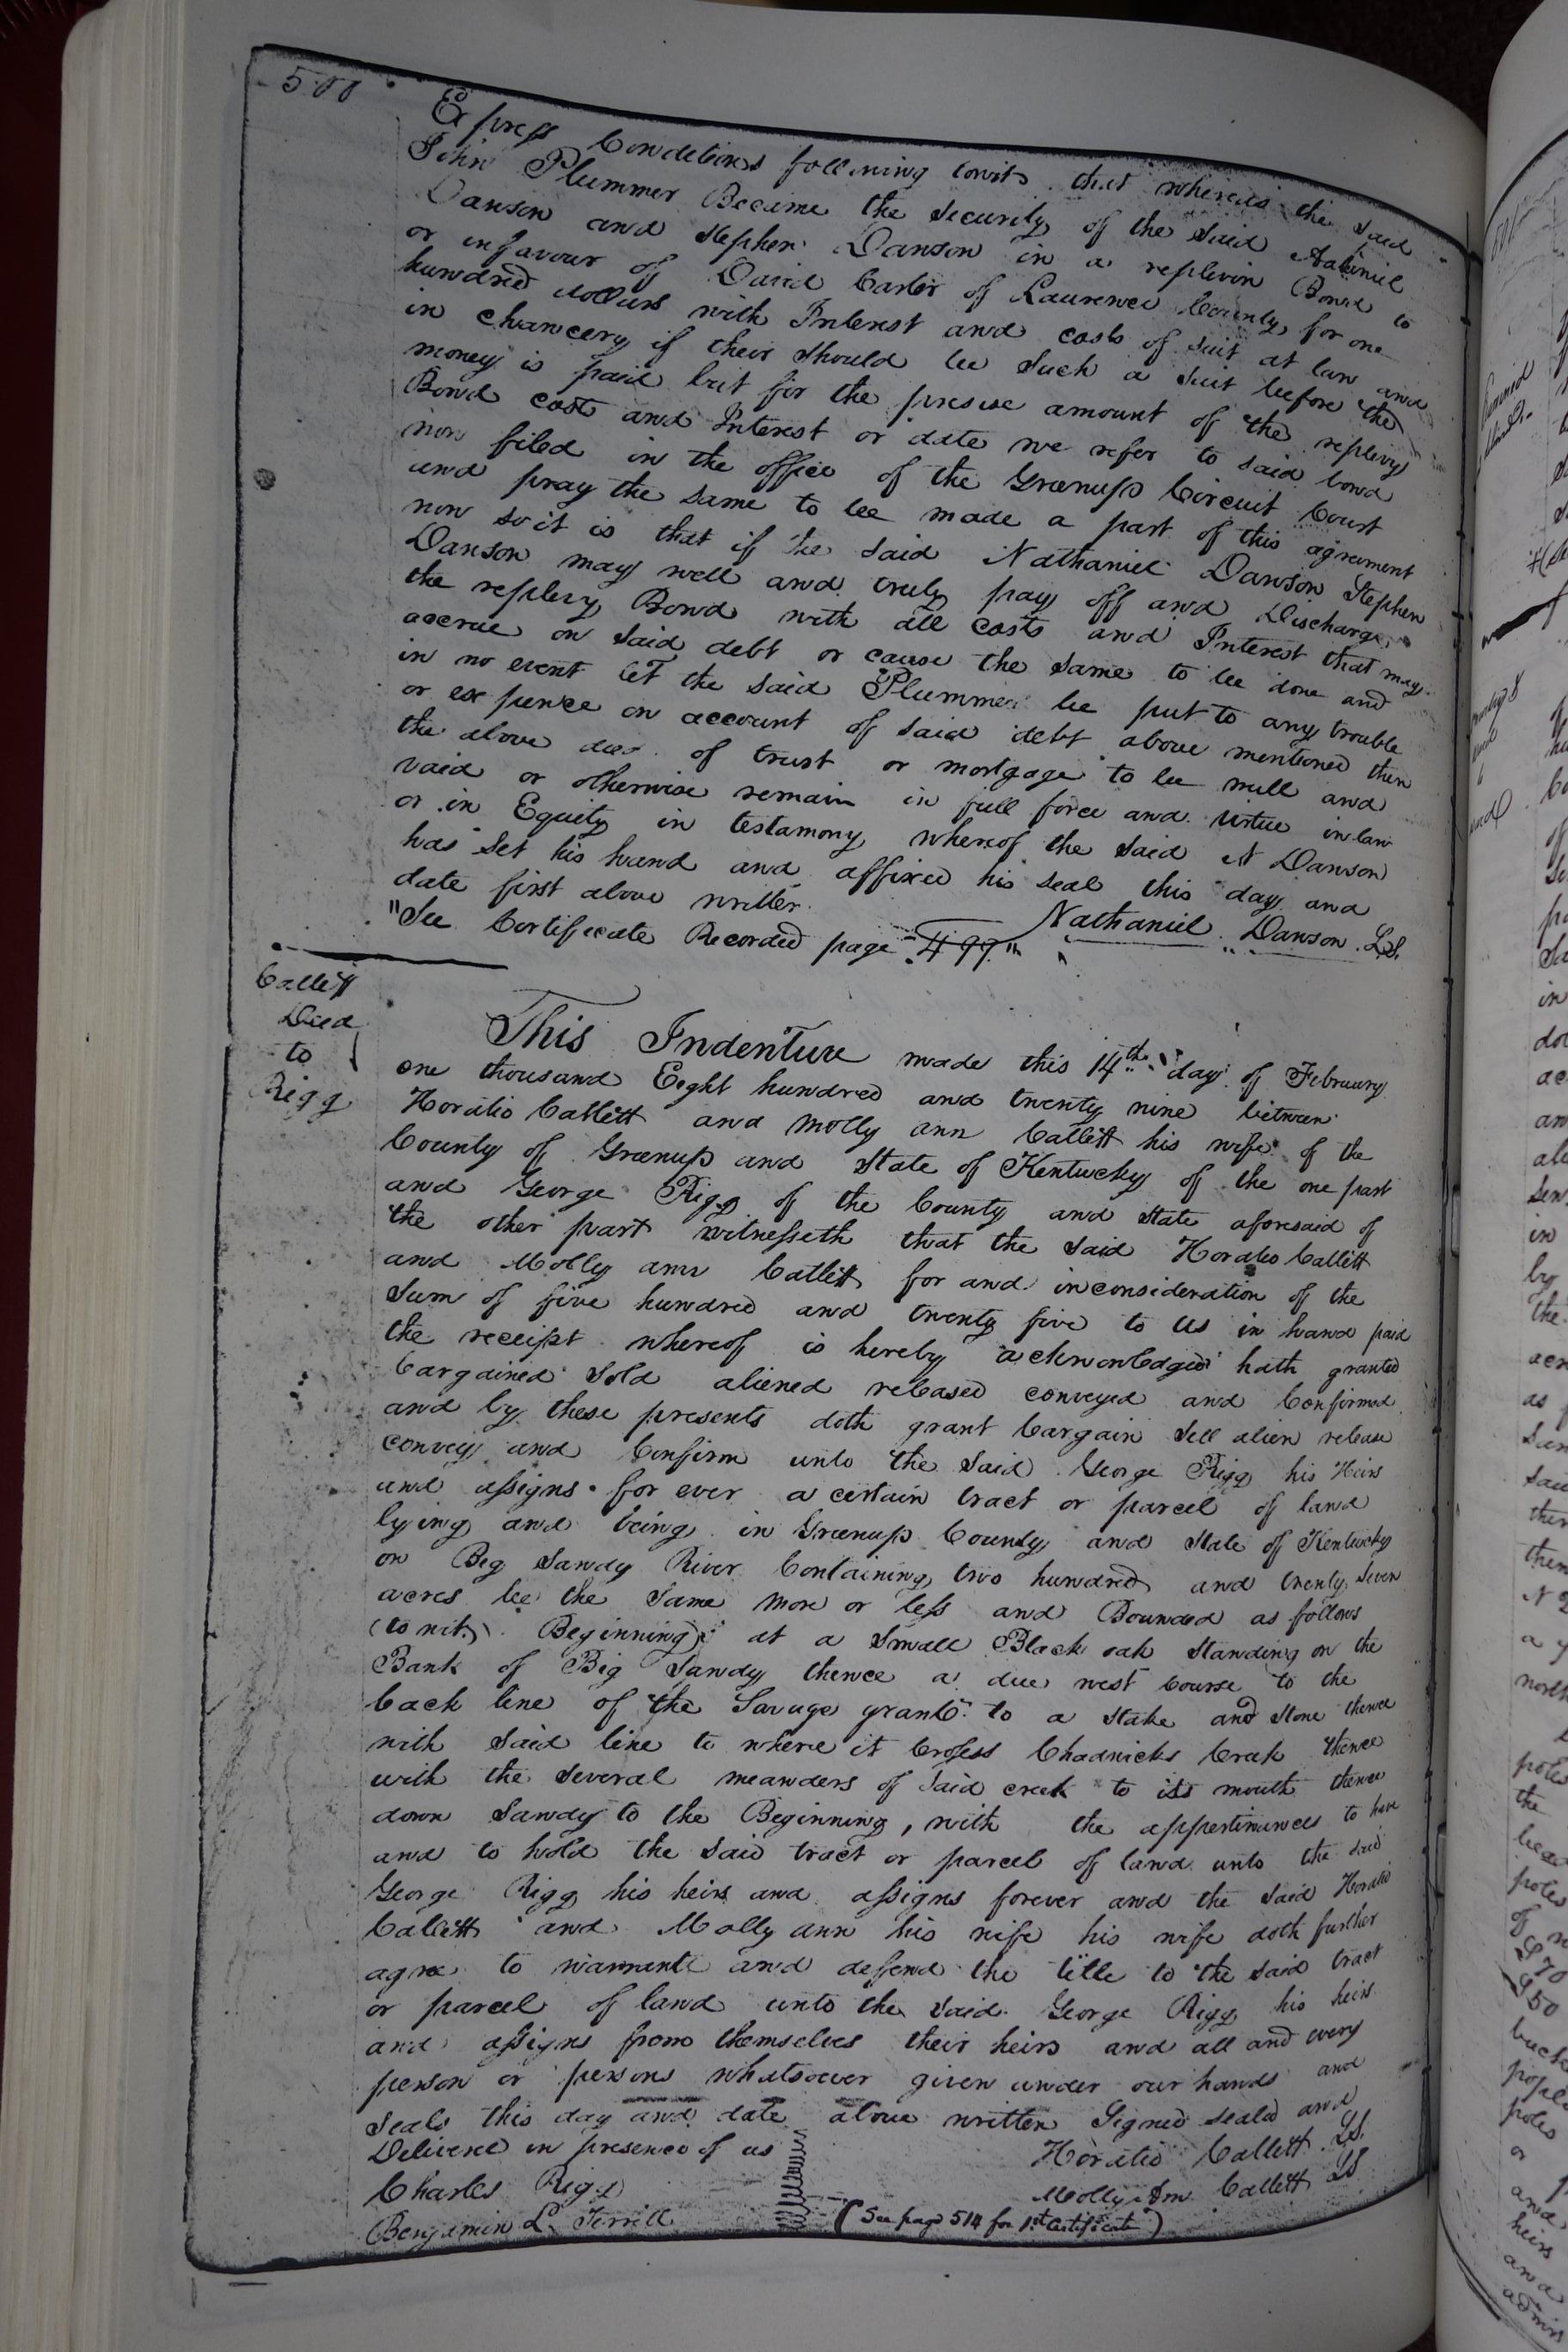 500
Express Conditions following towit, that whereas the said
John Plummer Became the security of the said Nathiniel
Danson and Stephen Danson in a replevin Bond to
or in favour of David Carter of Laurence County, for one
hundred dollars with Interest and costs of suit at law and
in chancery if their should be such a suit before the
money is paid but for the presise amount of the replevy
Bond cost and Interest or date we refer to said bond
now filed in the office of the Greenup Circuit Court
and pray the same to be made a part of this agreement
now so it is that if the said Nathaniel Danson Stephen
Danson may well and truly pay off and Discharge
the replevy Bond with all costs and Interest that may
accrue on said debt or cause the same to be done and
in no event let the said Plummer be put to any trouble
or expence on account of said debt above mentioned then
the above deed of trust or mortgage to be null and
void or otherwise remain in full force and virtue in law
or in Equity in testamony whereof the said N Danson
has set his hand and affixed his seal this day and
date first above written.
Nathaniel Danson L.S.
"See Certificate Recorded page "499"
Catlett
Deed
to
Rigg
This Indenture made this 14th day of February
one thousand Eight hundred and twenty nine between
Horatio Catlett and Molly ann Catlett his wife of the
County of Greenup and State of Kentucky of the one part
and George Rigg of the County and State aforesaid of
the other part witnesseth that the said Horatio Catlett
and Molly ann Catlett for and inconsideration of the
Sum of five hundred and twenty five to us in hand paid
the receipt whereof is hereby acknowledged hath granted
bargained sold aliened released conveyed and Confirmed
and by these presents doth grant bargain Sell alien release
convey and Confirm unto the said George Rigg his Heirs
and assigns for ever a certain tract or parcel of land
lying and being in Greenup County and State of Kentucky
on Big Sandy River Containing two hundred and twenty seven
acres be the same more or less and Bounded as follows
(to wit). Beginning at a small Black oak standing on the
Bank of Big Sandy thence a due west course to the
back line of the Savage grant to a stake and stone thence
with said line to where it crosess Chadwicks Creek thence
with the several meanders of said creek to its mouth thence
down Sandy to the Beginning, with the appertinances to have
and to hold the said tract or parcel of land unto the said
George Rigg his heirs and assigns forever and the said Horatio
Catlett and Molly ann his wife his wife doth further
agree to warrant and deffend the title to the said tract
or parcel of land unto the said George Rigg his heirs
and assigns from themselves their heirs and all and every
person or persons whatsoever given under our hands and
seals this day and date above written Signed sealed and
Delivered in presence of us
Horatio Catlett L.S.
Charles Rigg
Molly Ann Catlett L.S.
Benjamin L. Terrill
(See page 514 for 1st Certificate)